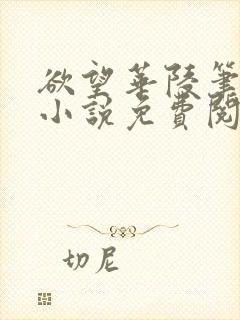 欲望華陵筆
小說免費閱
切尼